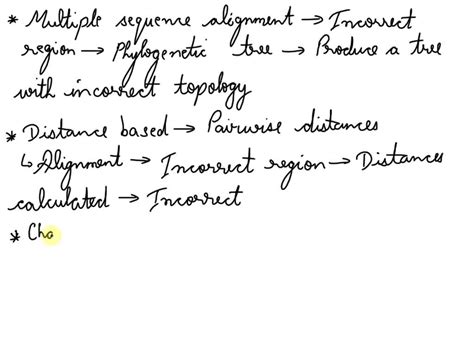 * Multiple sequence alignment → Incorrect
region → Phylogenetic tree → Produce a tree
with incorrect topology
* Distance based → Pairwise distances
↳ Alignment → Incorrect region → Distances
calculated → Incorrect
* Cha